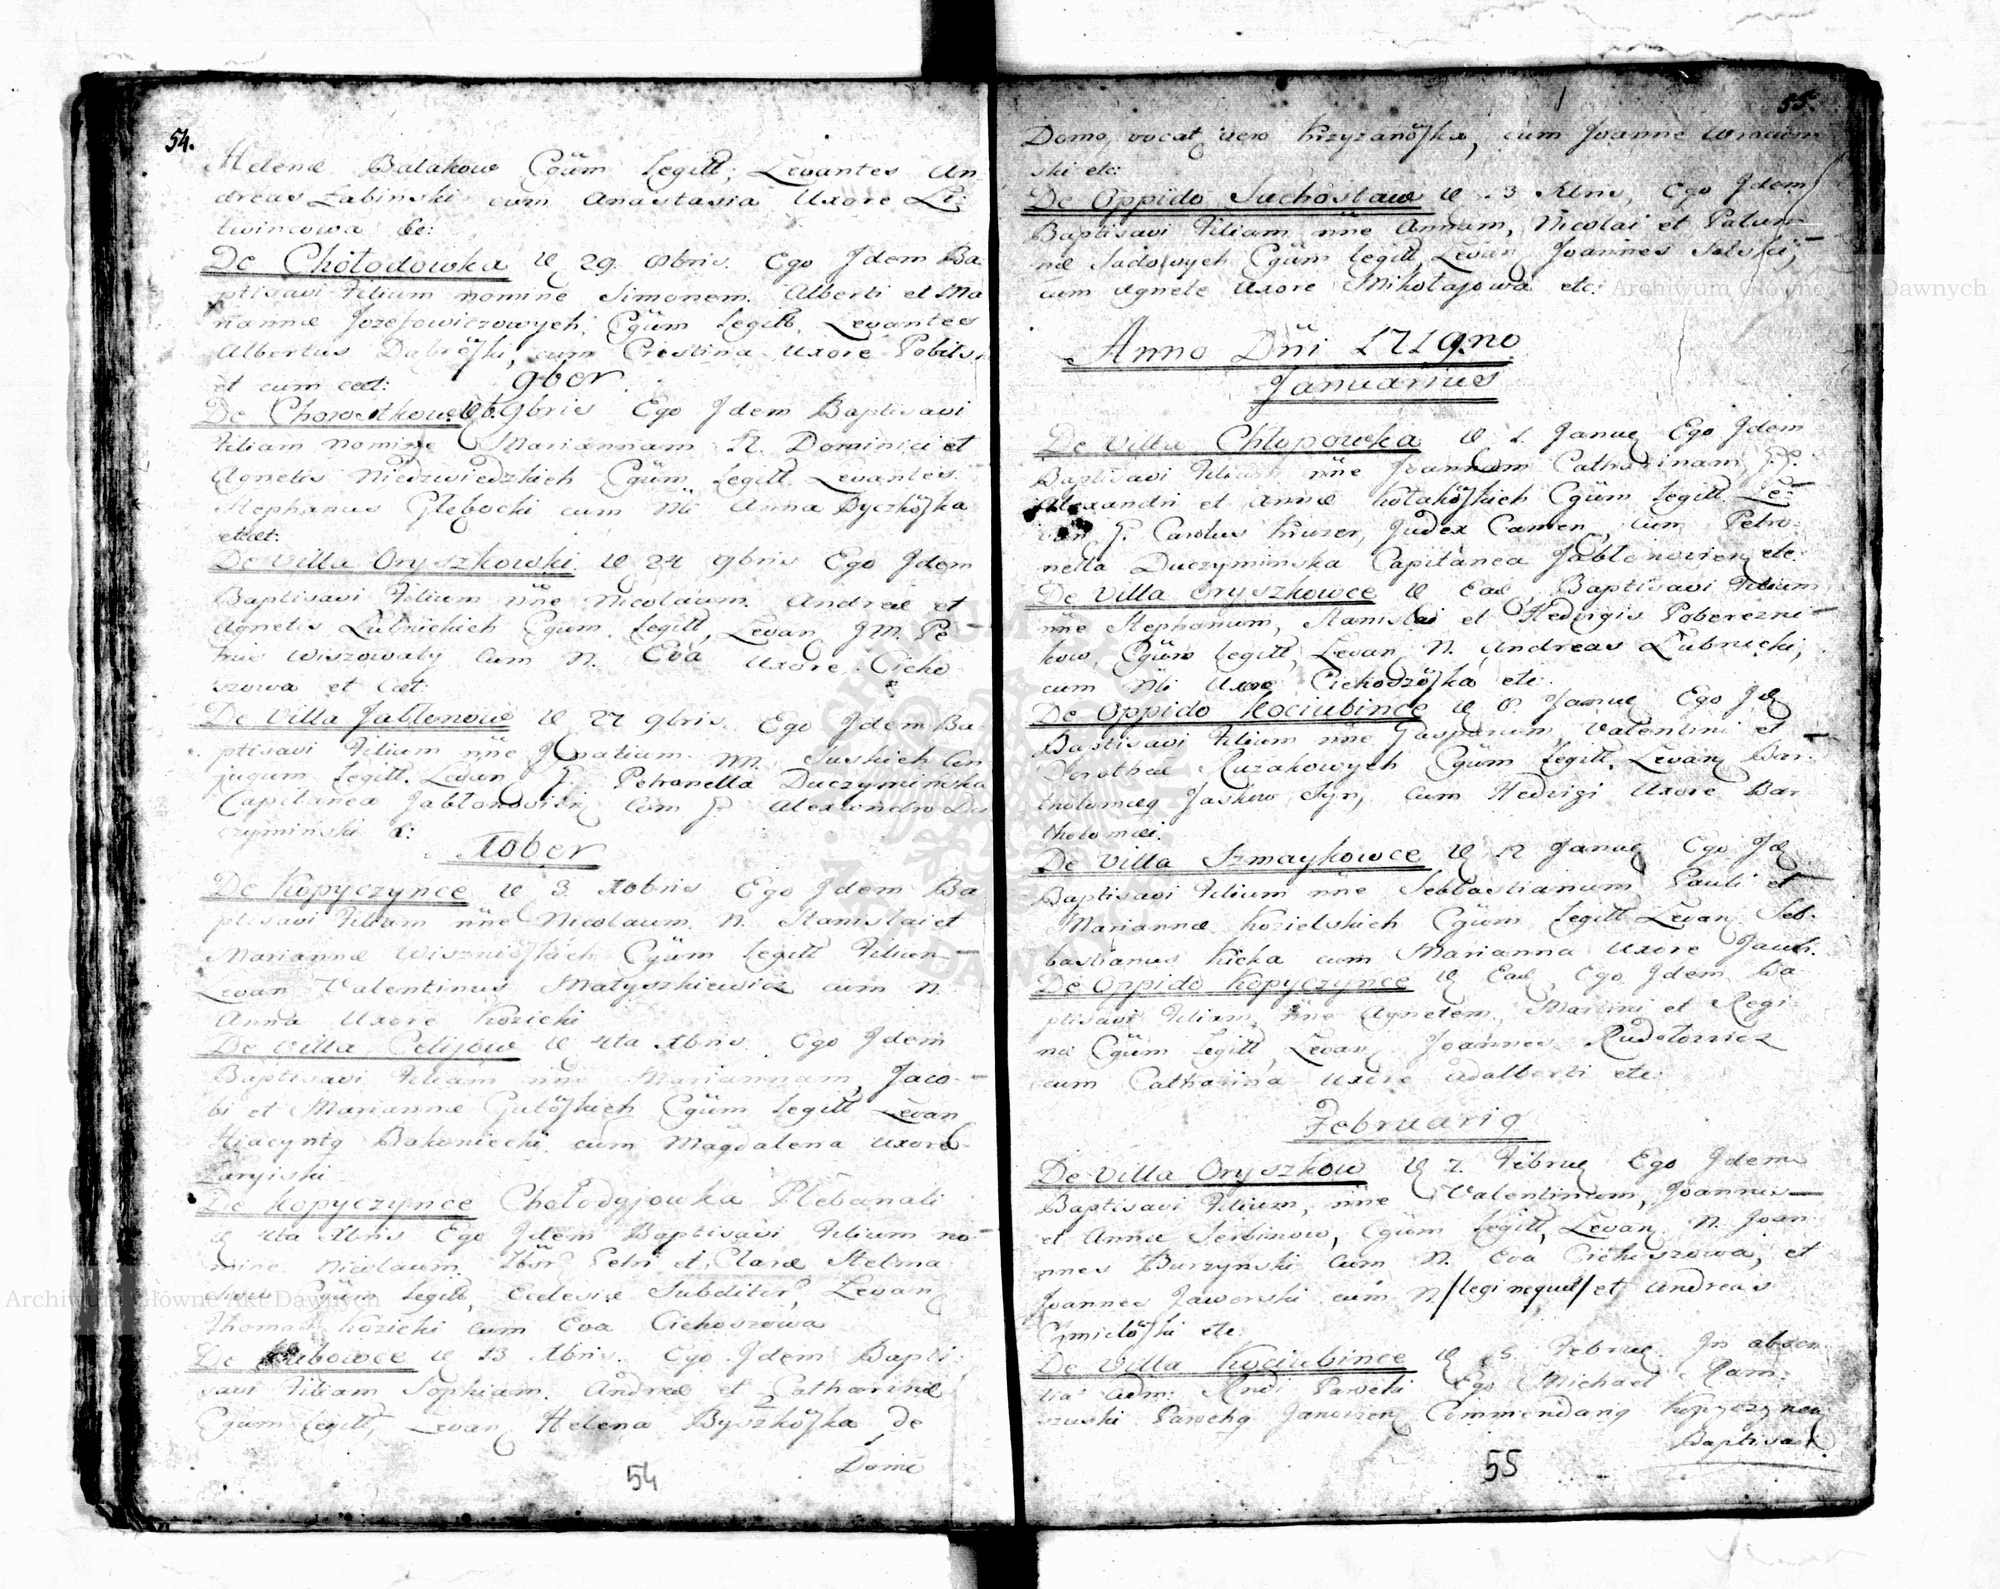 54.
Helenæ Balakow Cgüm Legitt; Levantes An
dreas Łabinski cum Anastasia Uxore Li:
twincowa &c:
De Chołodowka D 29. 8bris. Ego Jdem Ba
ptisavi Filium nomine Simonem. Alberti et Ma
riannæ Jozefowiczowych, Cgüm Legitt, Levantes
Albertus Dąbröski, cum Cristina Uxore
et cum cæt:
9ber.
De Chorostkow D 6. 9bris Ego Jdem Baptisavi
Filiam Nomine Mariannam N. Dominici et
Agnetis Niedzwiedzkich Cgüm Legitt Levantes.
Stephanus Głębocki cum Anna Byczköska
et cæt:
De Villa Oryszkowski D 24 9bris Ego Jdem
Baptisavi Filium nñe Nicolaum. Andreæ et
Agnetis Łubnickich Cgüm. Legitt, Levan J.M. Pe
trus Wiszowaty Cum N. Eva Uxore Cicho
szowa et Cæt:
De Villa Jabłonow D 27 9bris. Ego Jdem Ba
ptisavi Filium nñe Jgnatium NN. Suskich Con
jugum Legitt. Levan P. Petronella Duczyminska
Capitanea Jabłonovien cum P. Alexandro Du
czyminski &:
Xber
De Kopyczynce D 3 Xbris Ego Jdem Ba
ptisavi Filium nñe Nicolaum. N. Stanislai et
Mariannæ Wiszniöskich Cgüm Legitt Filium
Levan Valentinus Matyszkiewicz cum N.
Anna Uxore Kozicki
De Villa Celijow D 4ta Xbris Ego Jdem
Baptisavi Filiam nñe Mariannam, Jaco-
bi et Mariannæ Gutöskich Cgüm Legitt Levan
Hiacyntq Bakoniecki cum Magdalena Uxore
De Kopyczynce Chołodyjowka Plebanali
D 4ta Xbris Ego Jdem Baptisavi Filium no-
mine Nicolaum. Petri et Claræ Stelma
Cgüm Legitt, Ecclesiæ Subditor, Levan
Thomas Kozicki cum Eva Cichoszowa
De D 13 Xbris. Ego Jdem Bapti:
savi Filiam Sophiam. Andreæ et Catharinæ
Cgüm Legitt, Levan Helena Byszköska de
Domo
54
55.
Domo, vocat vero Krzyzanöska, cum Joanne
ski etc:
De Oppido Suchostaw D 13 Xbris, Ego Jdem
Baptisavi Filiam nñe Annam, Nicolai et
næ Sadowych Cgüm Legitt, Levan Joannes
cum Agnete Uxore Mikołajowa etc:
Anno Dñi 1719.no
Januarius
De Villa Chłopowka D 1. Januq Ego Jdem
Baptisavi Filiam nñe Joannam Catharinam P.P.
Alexandri et Annæ Kołaköskich Cgüm Legitt Le:
van P. Carolus Kruzer, Judex Camen, cum Petro-
nella Duczyminska Capitanea Jabłonovien etc:
De Villa Oryszkowce D Ead, Baptisavi Filium
nñe Stephanum, Stanislai et Hedvigis Poberezni-
kow, Cgüm Legitt, Levan N. Andreas Łubnicki,
cum Uxore Cichoszöska etc:
De Oppido Kociubince D 6. Januq Ego Jd
Baptisavi Filium nñe Gasparum, Valentini et
Dorotheæ Ruzakowych Cgüm Legitt, Levan Bar-
tholomæq Jaskow Syn, cum Hedvigi Uxore Bar-
tholomæi.
De Villa Szmaykowce D 12 Januq Ego Jd
Baptisavi Filium nñe Sebbastianum Pauli et
Mariannæ Kozielskich Cgüm Legitt Levan Seb-
bastianus Kicka cum Marianna Uxore Jacob.
De Oppido Kopyczynce D Ead, Ego Jdem Ba
ptisavi Filiam, nñe Agnetem, Martini et Regi-
næ Cgüm Legitt, Levan Joannes Rudołowicz
cum Catharina Uxore Adalberti etc:
Februariq
De Villa Oryszkow D 2. Februq Ego Jdem
Baptisavi Filium, nñe Valentinum, Joannis
et Annæ Serbinow, Cgüm Legitt, Levan N. Joan
nnes Burzynski Cum N. Eva Cichoszowa, et
Joannes Jaworski cum N /legi nequit/ et Andreas
Cmielöski etc
De Villa Kociubince D 5. Februq. Jn absen
tia Adm: Rndi Parochi Ego Michael Ram-
szuski Parochq Janovien Commendariq Kopyczyncen
Baptisavi
55
Archiwum Główne Akt Dawnych
Archiwum Główne Akt Dawnych